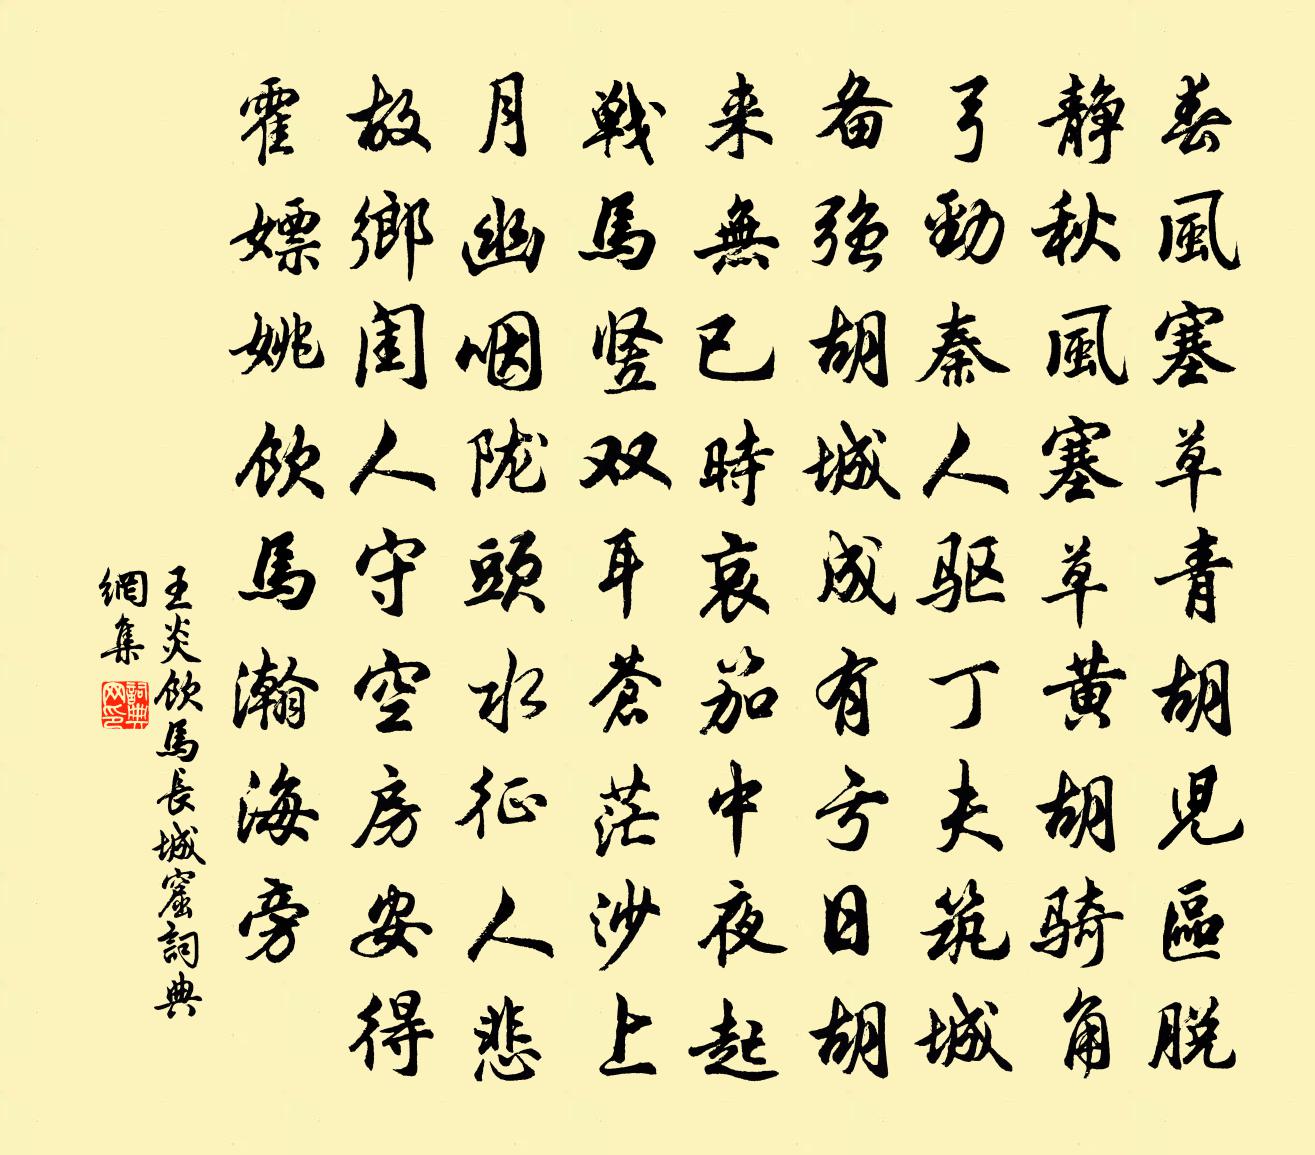 春風塞草青胡児區脱
静秋風塞草黄胡騎角
弓勁秦人驱丁夫筑城
备强胡城成有亏日胡
来無已時哀笳中夜起
戦馬竖双耳蒼茫沙上
月幽咽陇頭水征人悲
故鄉闺人守空房安得
霍嫖姚飲馬瀚海旁
王炎飲馬長城窟詞典
網集
詞典
网印